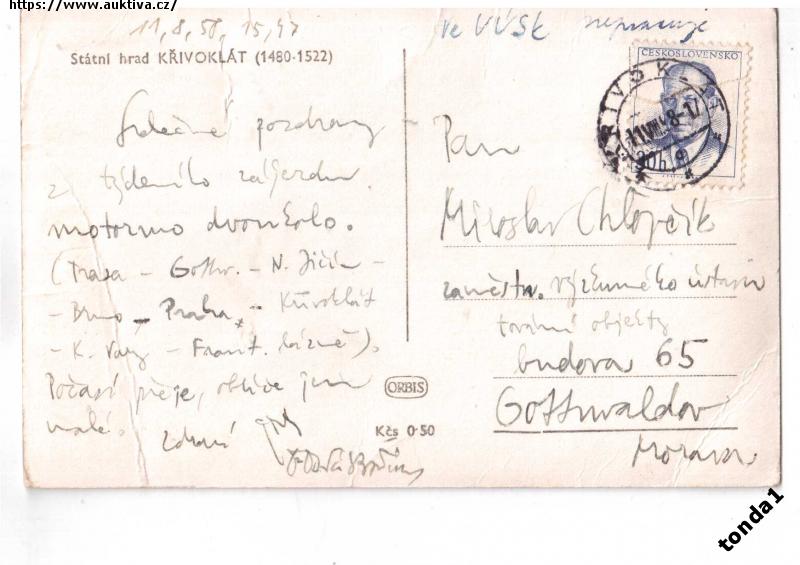 https://www.auktiva.cz/
11,8,58, 15,47
ve VÚSK nepracuje
Státní hrad KŘIVOKLÁT (1480-1522)
ČESKOSLOVENSKO
KŘIVOKLÁT
Srdečné pozdravy
z týdeního zájezdu
motormo dvoukolo.
(Trasa - Gottw. - N. Jičín -
- Brno - Praha - Křivoklát
- K. Vary - Frant. lázně).
Počasí přeje, obtíže jsou
malé. Zdraví
Pan
Miroslav Chlopčík
zaměstn. výzkumného ústavu
tovární objekty
budova 65
Gottwaldov
Morava
ORBIS
Kčs 0·50
tonda1